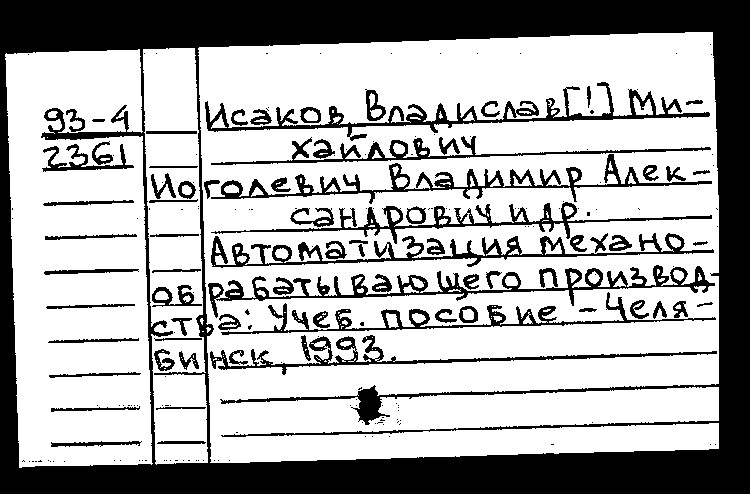 93-4 Исаков, Владислав[!] Ми-
2361 хайлович
Иоголевич, Владимир Алек-
сандрович и др.
Автоматизация механо-
обрабатывающего производ-
ства: Учеб. пособие - Челя-
бинск, 1993.